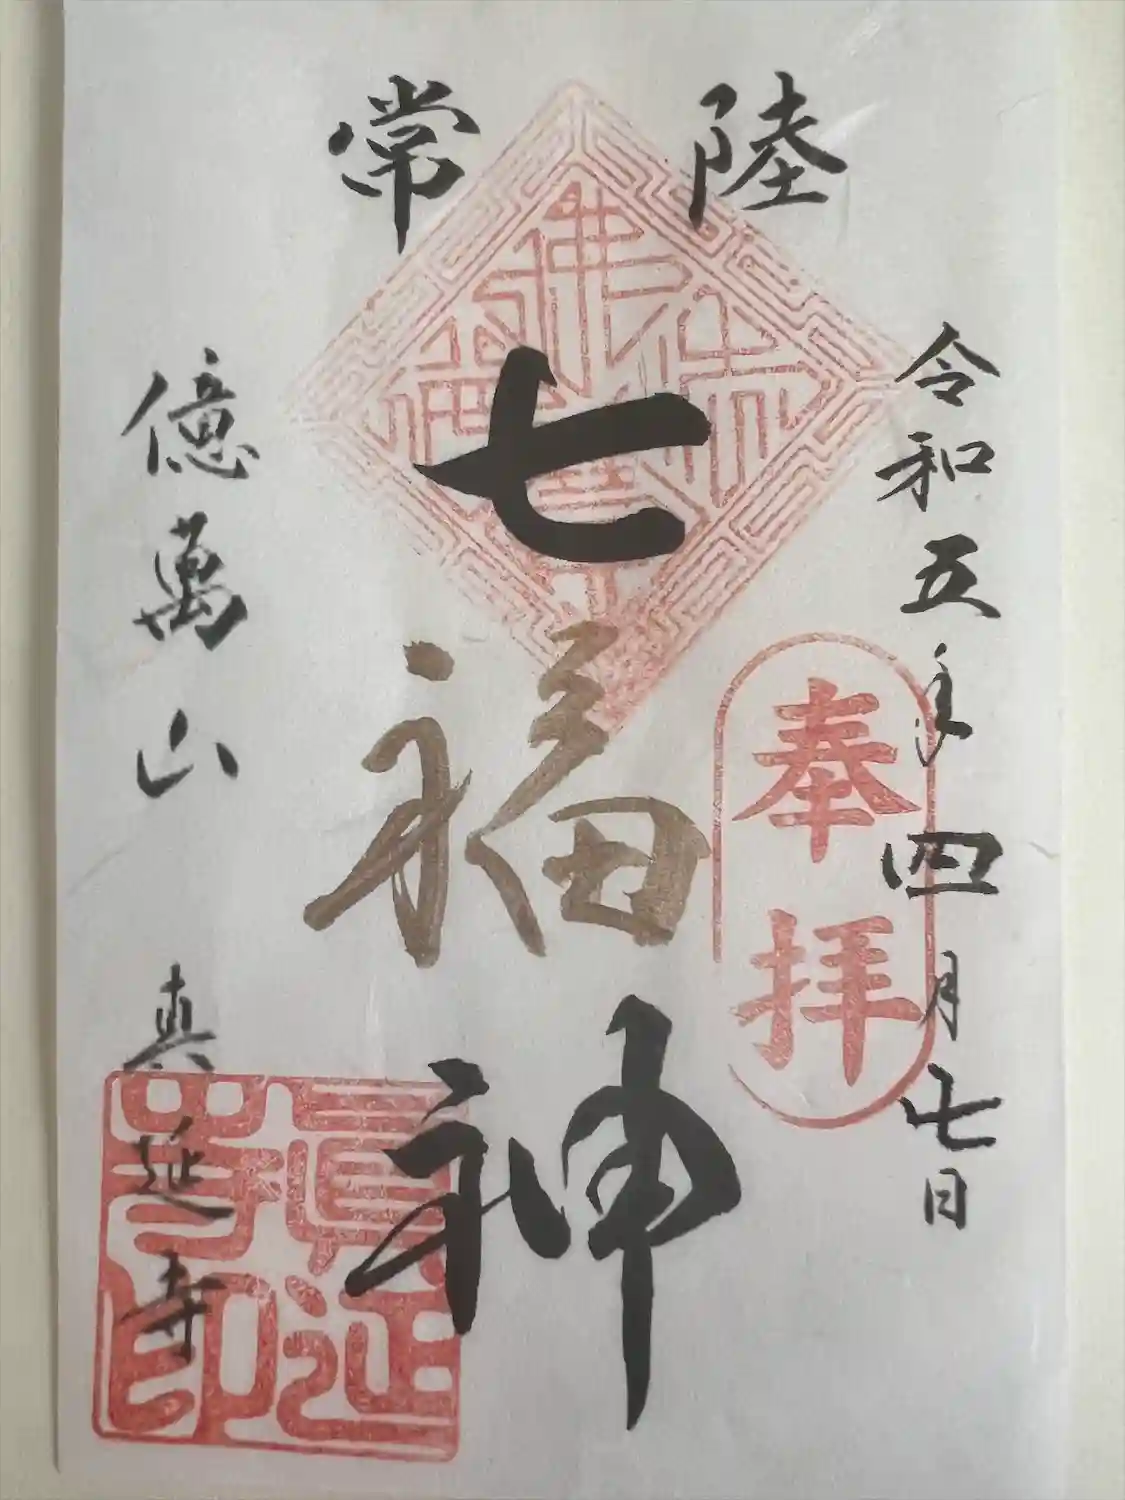 常陸
令和五年四月七日
奉拝
七福神
億萬山 真延寺
眞延寺印